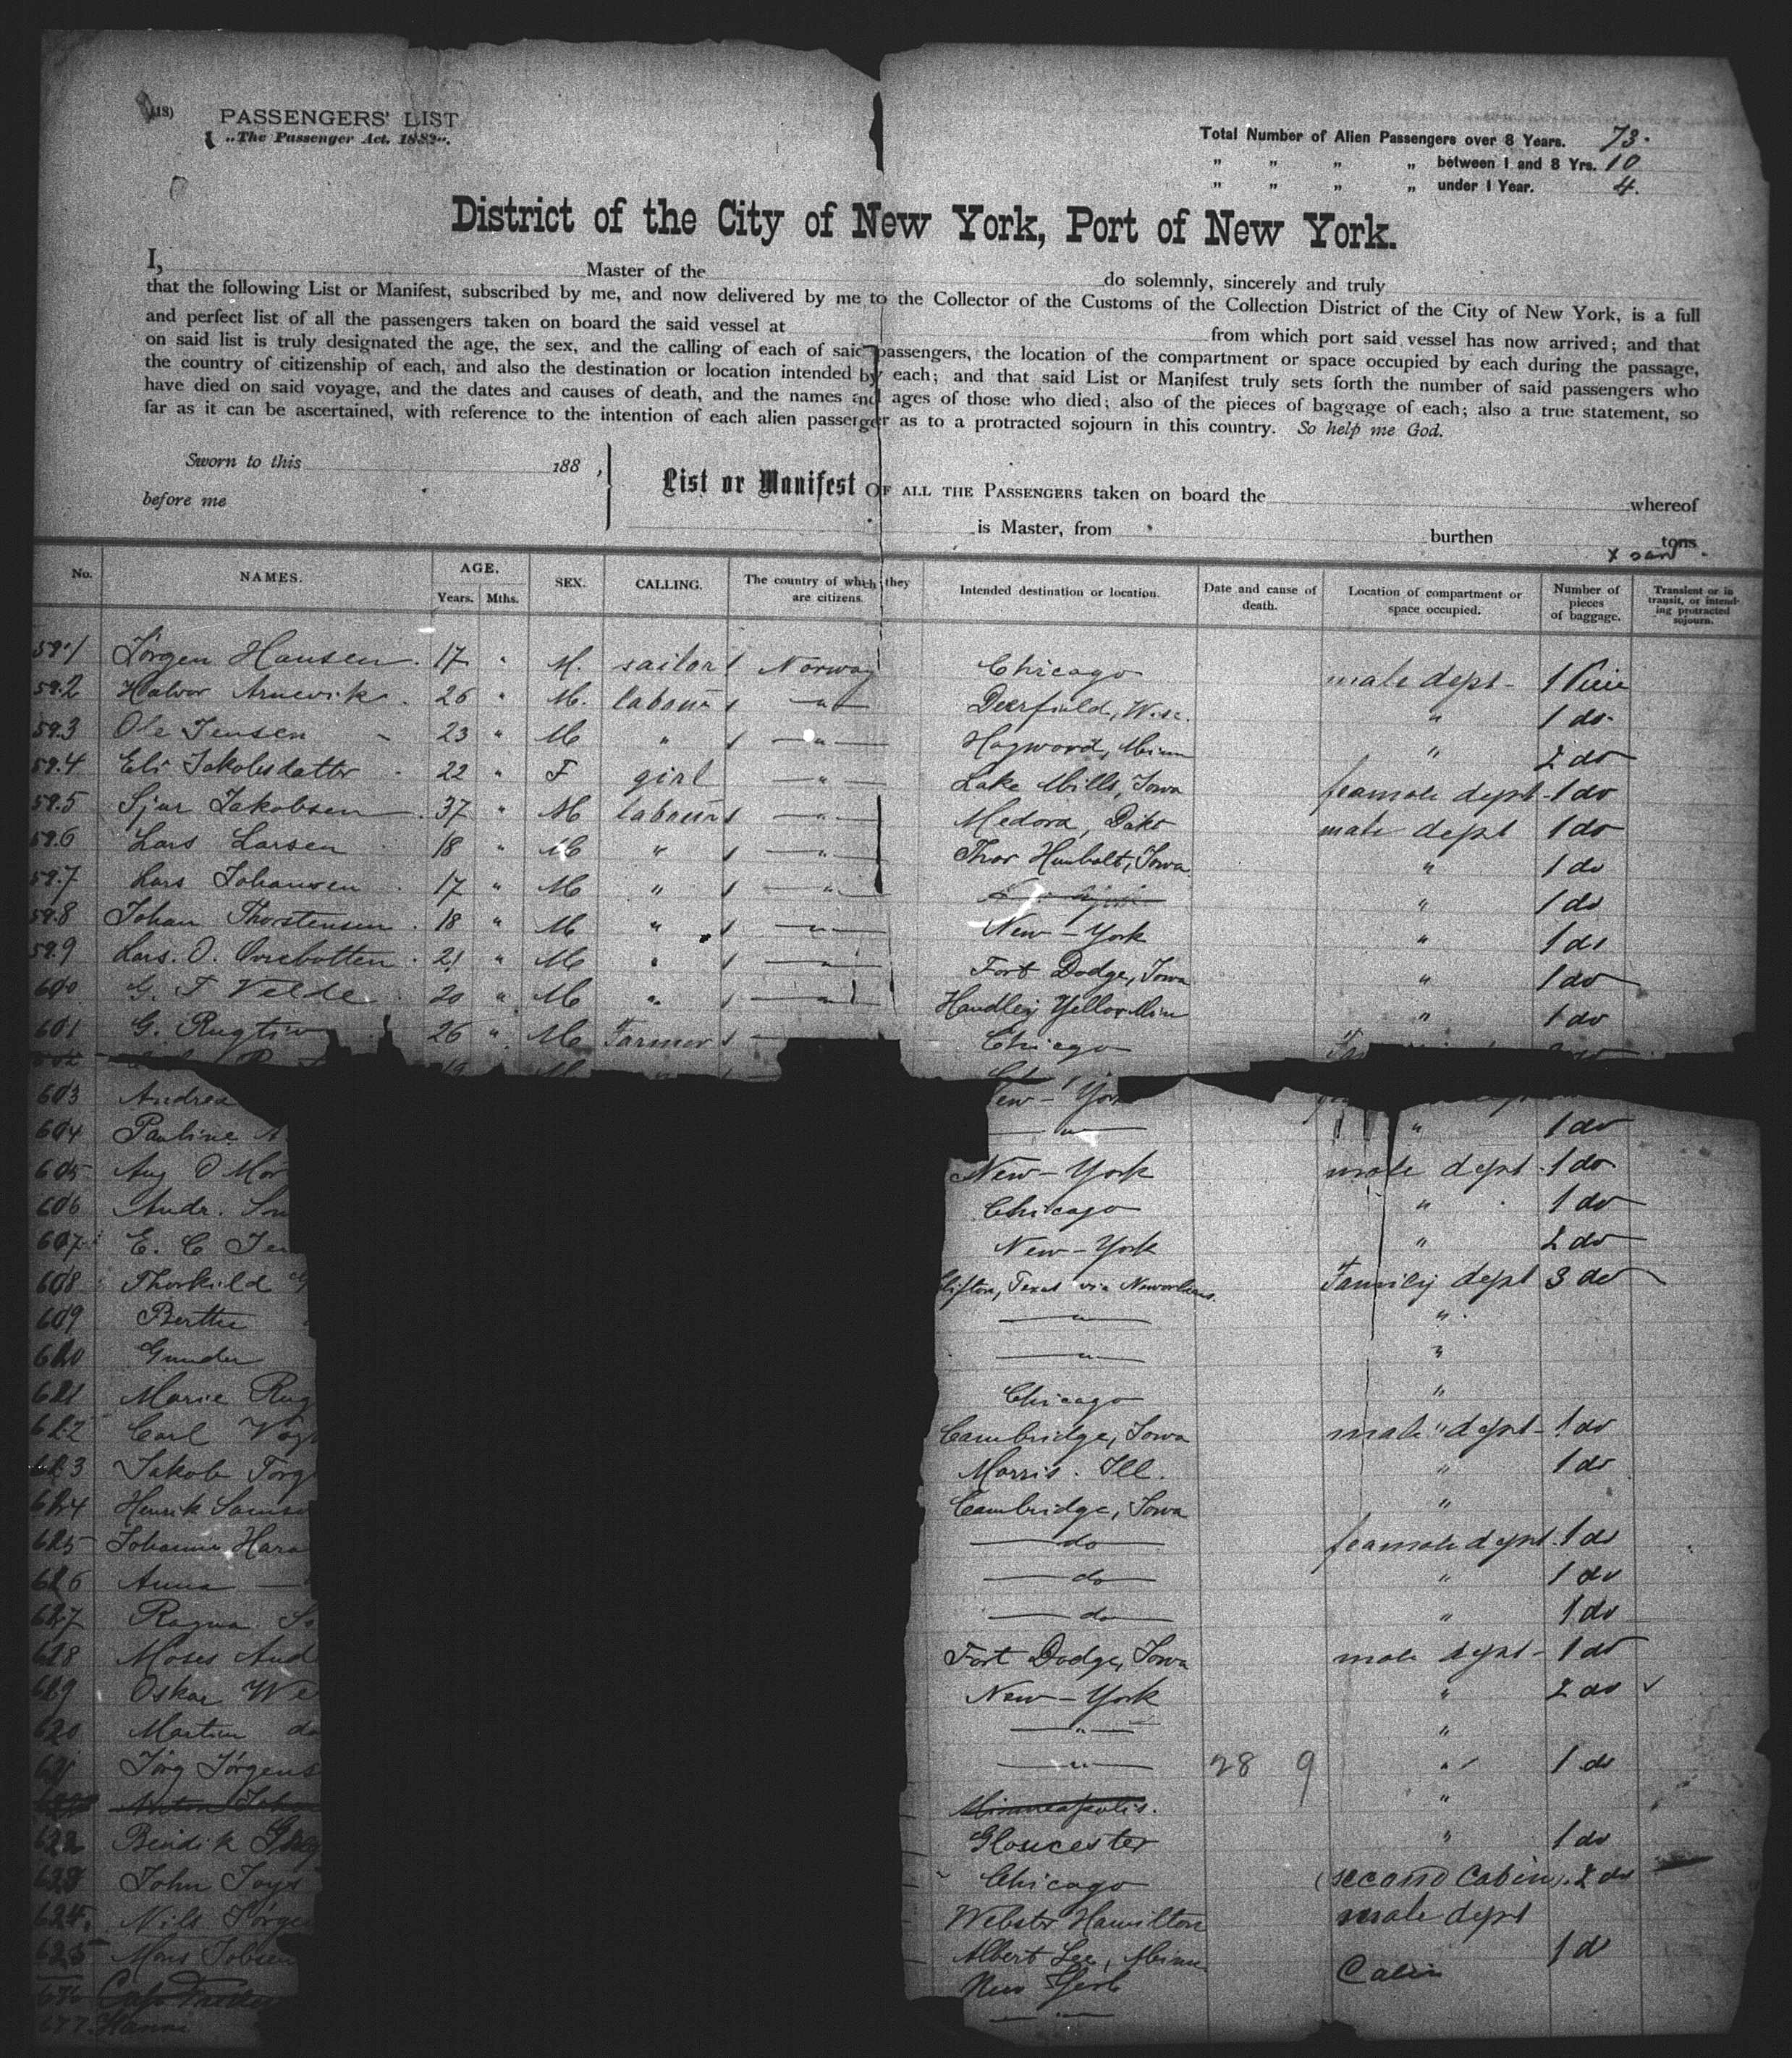 (18)
PASSENGERS' LIST
„The Passenger Act. 1882".
Total Number of Alien Passengers over 8 Years. 73.
„ „ „ „ between 1 and 8 Yrs. 10
„ „ „ „ under 1 Year. 4.
District of the City of New York, Port of New York.
I, Master of the do solemnly, sincerely and truly
that the following List or Manifest, subscribed by me, and now delivered by me to the Collector of the Customs of the Collection District of the City of New York, is a full
and perfect list of all the passengers taken on board the said vessel at from which port said vessel has now arrived; and that
on said list is truly designated the age, the sex, and the calling of each of said passengers, the location of the compartment or space occupied by each during the passage,
the country of citizenship of each, and also the destination or location intended by each; and that said List or Manifest truly sets forth the number of said passengers who
have died on said voyage, and the dates and causes of death, and the names and ages of those who died; also of the pieces of baggage of each; also a true statement, so
far as it can be ascertained, with reference to the intention of each alien passenger as to a protracted sojourn in this country. So help me God.
Sworn to this 188 ,
before me
List or Manifest OF ALL THE PASSENGERS taken on board the whereof
is Master, from burthen tons
No. NAMES. AGE. Years. Mths. SEX. CALLING. The country of which they are citizens. Intended destination or location. Date and cause of death. Location of compartment or space occupied. Number of pieces of baggage. Transient or in transit, or intending protracted sojourn.
591 Jörgen Hansen 17 " M. sailor Norway Chicago male dept 1
592 Halvor 26 " M. Deerfield, Wisc. " 1 do
593 Ole Jensen 23 " M " " Hayword, Minn " 2 do
594 Eli Jakobsdatter 22 " F girl " Lake Mills, Iowa feamale dept 1 do
595 Sjur Jakobsen 37 " M " Medora, Dako male dept 1 do
596 Lars Larsen 18 " M " " Thor Humbolt, Iowa " 1 do
597 Lars Johansen 17 " M " " " 1 do
598 Johan Thorstensen 18 " M " " New-York " 1 do
599 Lars. O. 21 " M " " Fort Dodge, Iowa " 1 do
600 G. T Velde 20 " M " " " 1 do
601 G. 26 " M Farmer Chicago
602 19 M
603 Andrea ew-York
604 Pauline " " 1 do
605 Aug O Mor New-York male dept 1 do
606 Andr. Chicago " 1 do
607 E. C Jen New-York " 2 do
608 Thorkild lifton, Texas via Neworleans. Family dept 3 do
609 Berthe " "
610 Gunder " "
611 Marie Rug Chicago "
612 Carl Cambridge, Iowa male dept 1 do
613 Jakob Torg Morris. Ill. " 1 do
614 Henrik Cambridge, Iowa "
615 Johanna Hara do feamale dept 1 do
616 Anna do " 1 do
617 Ragna do " 1 do
618 Moses And Fort Dodge, Iowa male dept 1 do
619 Oskar We New-York " 2 do
620 Martin " "
621 Jörg Jörgens " 28 9 " 1 do
Anton Joha Minneapolis. "
622 Bendik Gloucester " 1 do
623 John Chicago (second Cabin) 2 do
624 Nils Jörge Webster Hamilton male dept
625 Mons Albert Lea, Minn. 1 do
New York Cabin
Hanna "